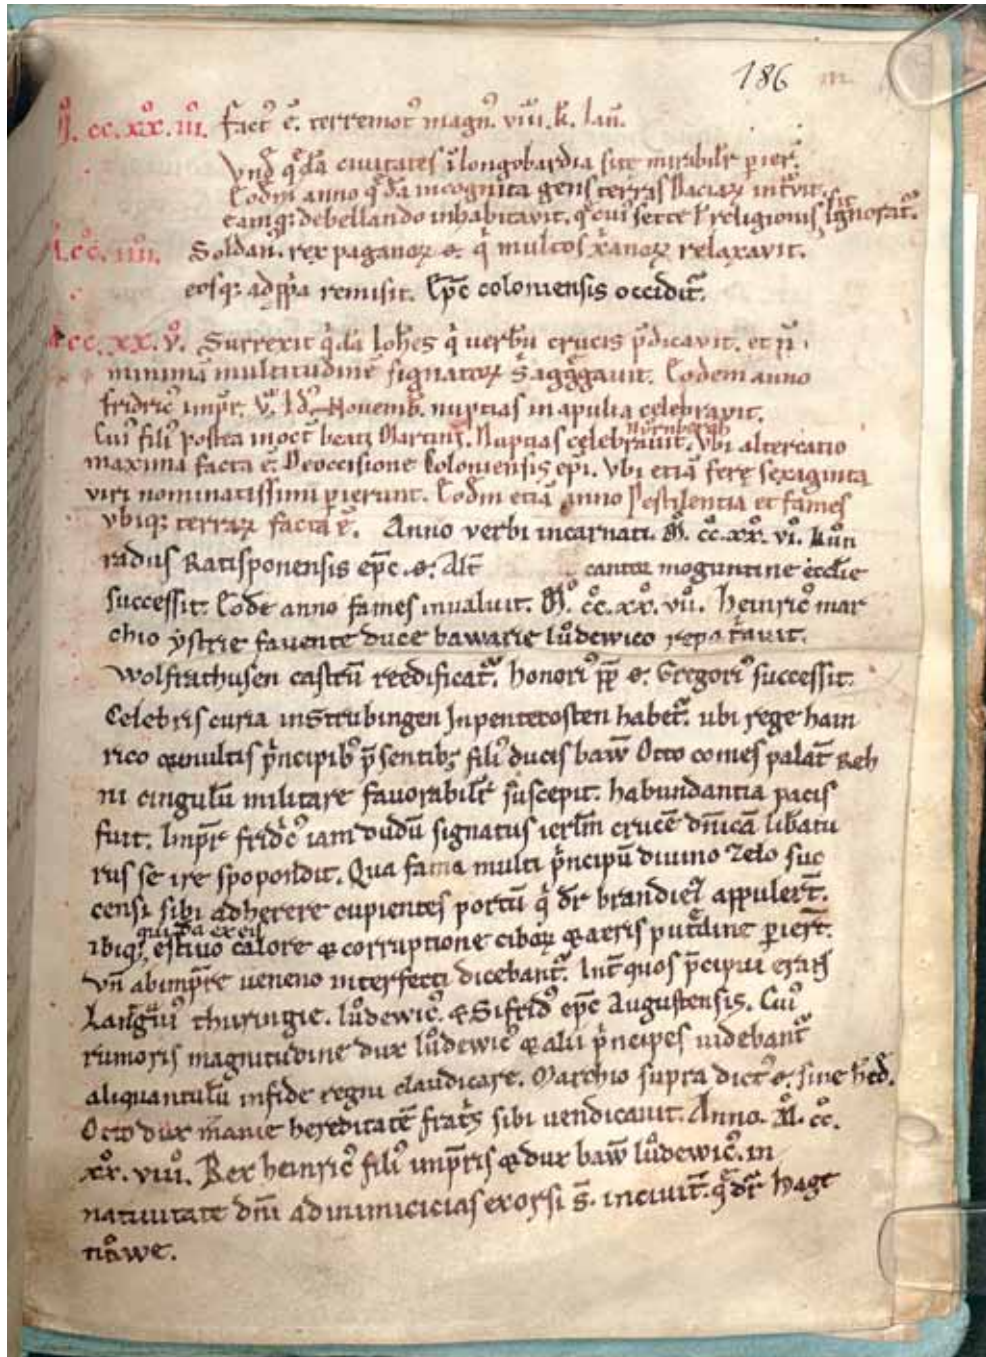 186
M. cc. xx. iii. fact᾽ ē. terremot᾽ magn᾽. viii. k. Ian̄.
Vnd̄ q̄dā ciuitates ī longobardia site mirabilit᾽ perier̄.
Eodm̄ anno q̄dā incognita gens terras Daciaꝝ intͣuit.
eamq; debellando inhabitauit. q̄ cui᾽ secte ł religionis sit ignorat᾽.
M. cc. iiii. Soldan᾽. rex paganoꝝ o. qͥ multos xp̄anoꝝ relaxauit.
eosq; ad pp̄a remisit. Ep̄c coloniensis occidit᾽.
M cc. xx. v. Surrexit qͥdā Ioh̄es qͥ uerbū crucis p̄dicauit. et n̄
minimā multitudinē signatoꝝ aggͤgauit. Eodem anno
fridric᾽ imp̄r. v. Id᾽. Nouemb᾽. nuptias in apulia celebrauit.
Cui᾽ fili᾽ postea in oct̄ beati Martini. Nuptias celebrauit. Vbi altercatio
Nŏrnbergh
maxima facta ē. De occisione Coloniensis ep̄i. Vbi etiā fere sexaginta
viri nominatissimi perierunt. Eodm̄ etiā anno Pestilentia et fames
vbiq; terraꝝ facta ē. Anno verbi incarnati. M̊. cc̊. xx̊. vi. kŏn
radus Ratisponensis ep̄c .o. Alt̄ cantor moguntine ecc̄lie
successit. Eodē anno fames inualuit. M̊. cc̊. xx̊. vii. heinric᾽ mar
chio ystrie fauente duce bawarie lŏdewico
wolfrathusen castrū reedificat᾽. honori᾽ pp̄ o. Gregori᾽ successit.
Celebris curia in Strubingen In pentecosten habet᾽. ubi rege hain
rico & multis pͥncipib᾽ p̄sentib; fili᾽ ducis baw̄ Otto comes palat̄ Reh
ni cingulū militare fauorabilit᾽ suscepit. habundantia pacis
fuit. Imp̄r fridͥc᾽ iam dudū signatus ierlm̄ crucē dn̄icā lib᾽atu
rus se ire spopondit. Qua fama multi pͥncipū diuino zelo suc
censi sibi adherere cupientes portū qͥ dr̄ brandiez appulert̄.
quidā ex eis
ibiq; estiuo calore & corruptione ciboꝝ & aeris putͤdine perierͭ.
Vn̄ ab imp̄re ueneno interfecti dicebant᾽. Int᾽ quos p̄cipui
Langͣui᾽ thuringie. lŏdewic᾽. & Sifrid᾽ ep̄c Augustensis. Cui᾽
rumoris magnitudine dux lŏdewic᾽ & alii pͥncipes uidebant᾽
aliquantulū in fide regni claudicare. Marchio supra dict᾽ o. sine h᾽ed̄.
Otto dux m᾽anie hereditatē fratͥs sibi uendicauit. Anno. M̊. cc̊.
xx̊. viii. Rex heinric᾽ fili᾽ imp̄ris & dux baw̄ lŏdewic᾽. in
natiuitate dn̄i ad inimicicias exorsi s̄. in ciuit̄. q̄ dr̄ hage
nŏwe.